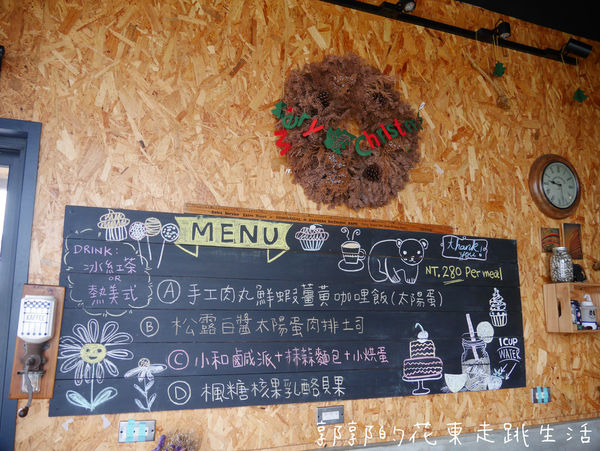 Merry Christmas
MENU
thank you
DRINK:
冰紅茶
OR
熱美式
NT.280 Per meal
Ⓐ 手工肉丸鮮蝦薑黃咖哩飯(太陽蛋)
Ⓑ 松露白醬太陽蛋肉排土司
Ⓒ 小和鹹派+抹蒜麵包+小烘蛋
Ⓓ 楓糖核果乳酪貝果
1 CUP
WATER
KAFFEE
郭郭的花東走跳生活